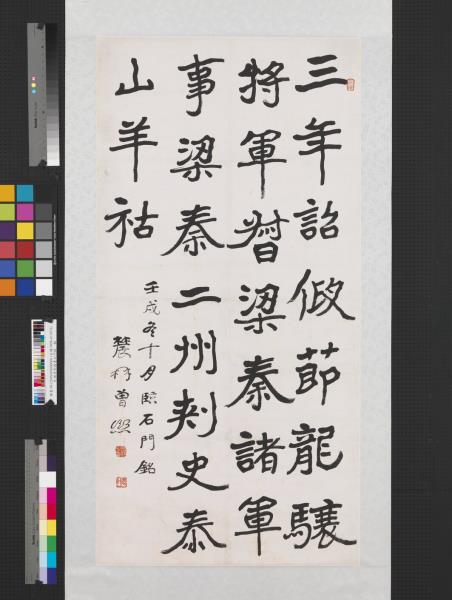 三年詔假節龍驤
將軍督梁秦諸軍
事梁秦二州刺史泰
山羊祜
壬戌冬十月臨石門銘
農髯曾熙